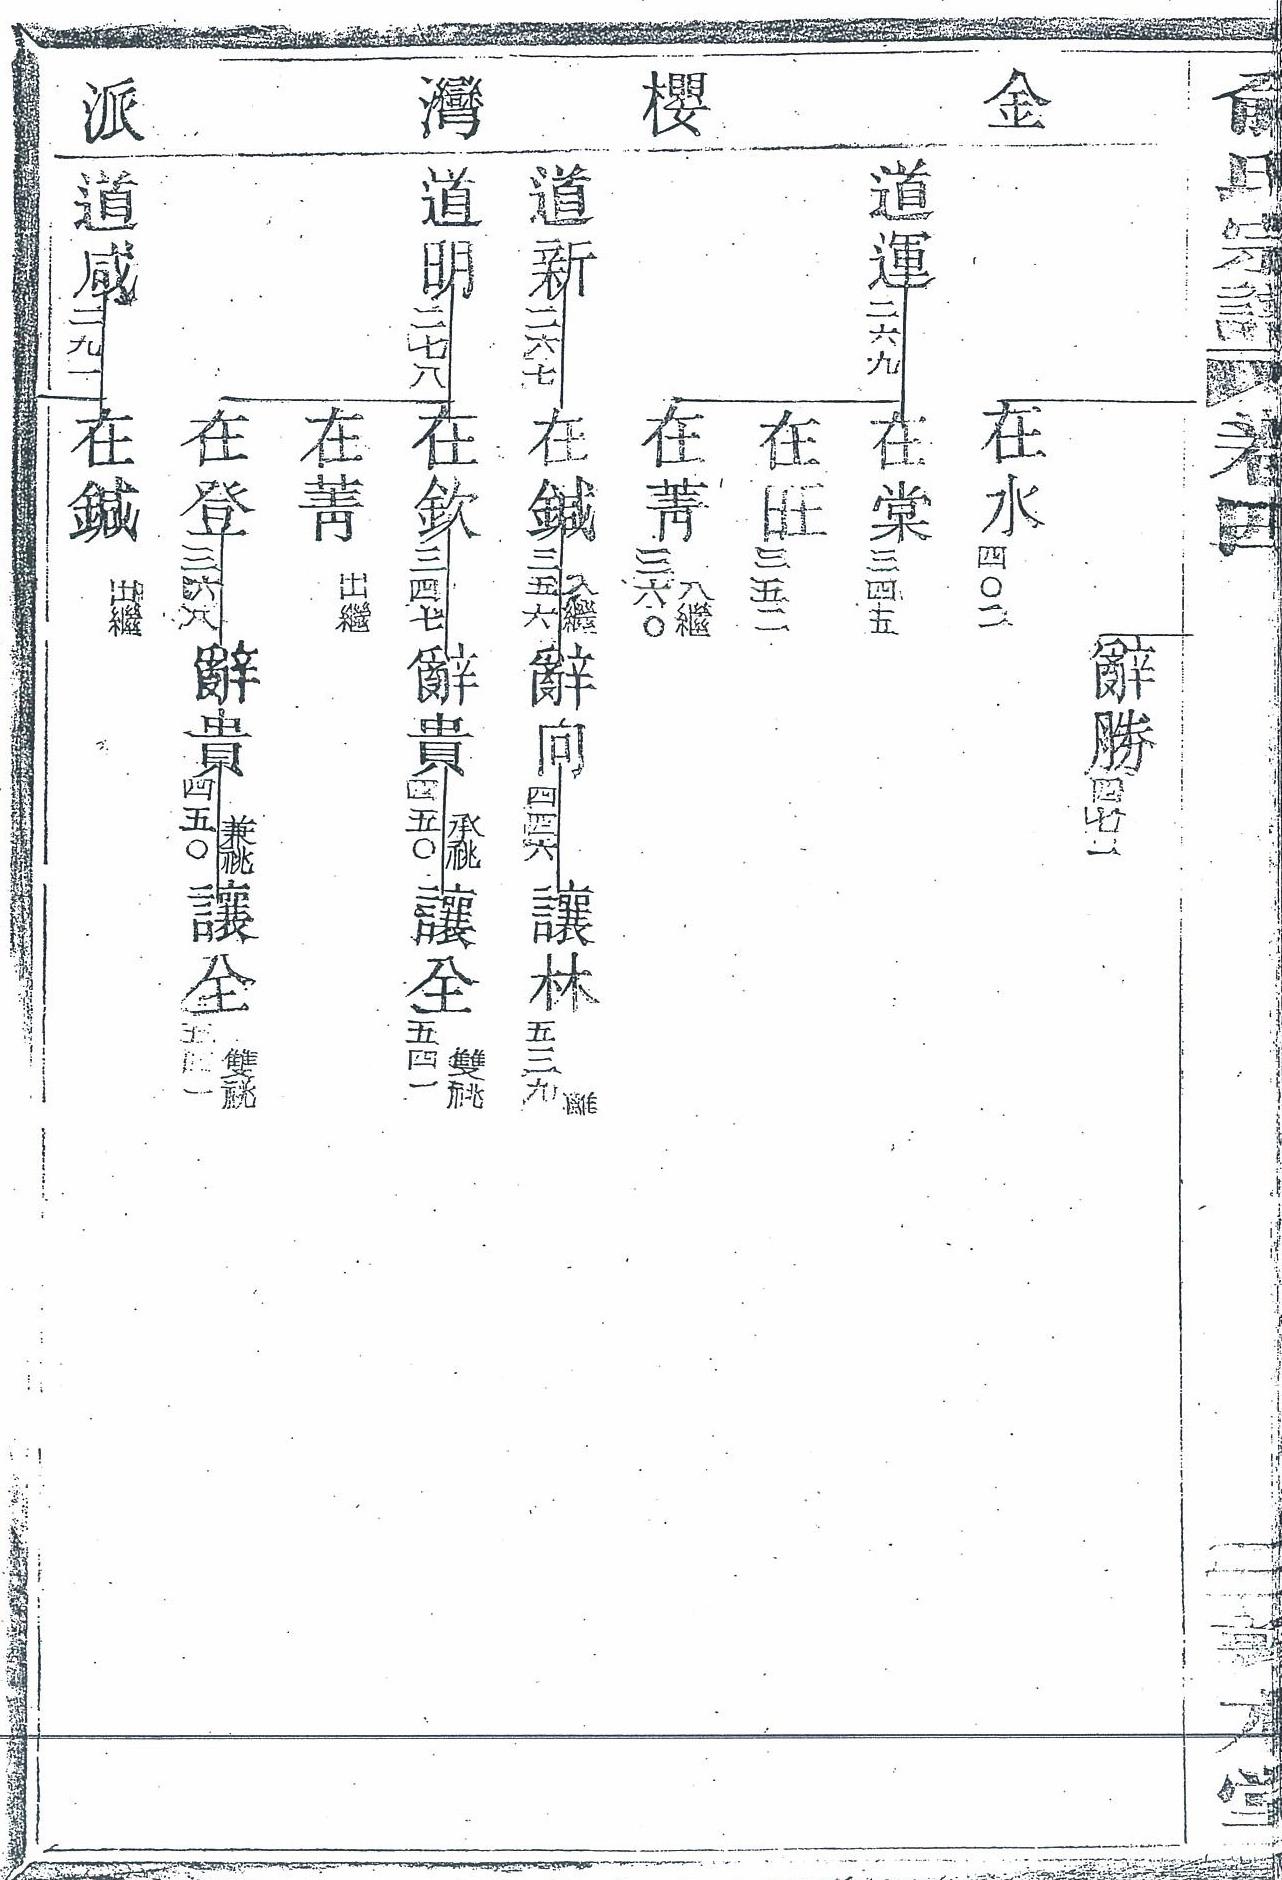 俞氏宗譜
卷四
堂
金櫻灣派
辭勝 四七二
在水 四〇二
道運 二六九
在棠 三四五
在旺 三五二
在菁 三六〇 入繼
道新 二六七
在鍼 三五六 入繼
辭向 四四六
讓林 五三九
道明 二七八
在欽 三四七
辭貴 四五〇 承祧
讓全 五四一 雙祧
在菁 出繼
在登 三六八
辭貴 四五〇 兼祧
讓全 五四一 雙祧
道咸 二九一
在鍼 出繼